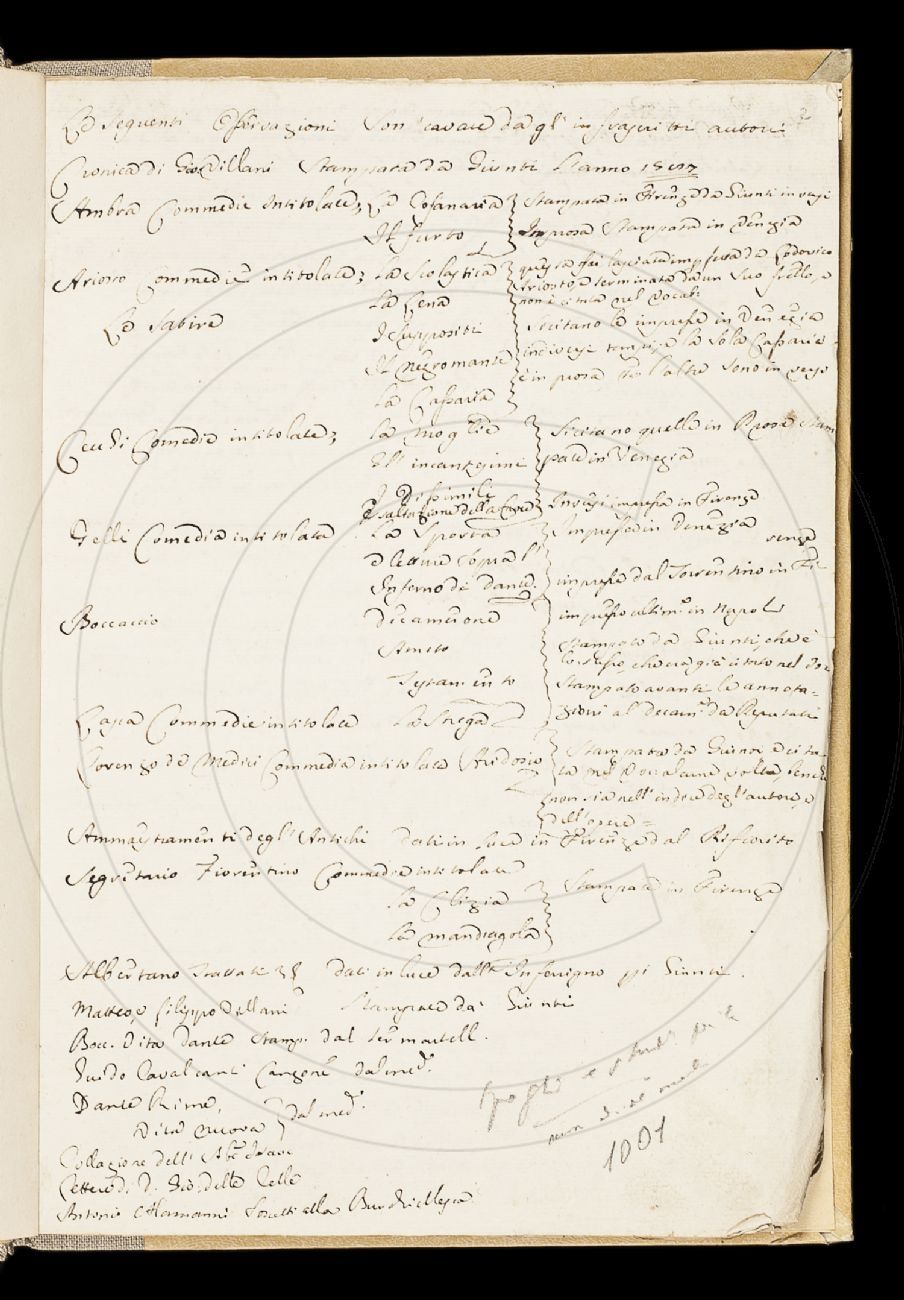 Le seguenti Osservazioni son cavate da gl' infrascritti autori
Cronica di Gio: Villani Stampata da Giunti L'anno 1587
Ambra Commedie Intitolate; La Cofanaria Stampata in Firenze da Giunti in versi
Il furto In prosa Stampata in Venezia
Ariosto Commedie intitolate; La Scolastica questa fu lasciata imperfetta da Lodovico
Ariosto, e terminata da un suo fratello, e
non è citata nel Vocab:
La Lena
Le Satire
I Suppositi Si citano le impresse in Venezia
Il Negromante in diversi tempi, e la sola Cassaria
La Cassaria è in prosa che l'altre sono in versi
Cecchi Comedie intitolate; La Moglie Si citano quelle in Prosa Stam
Gl' incantesimi pate in Venezia
I Dissimili
Esaltazione della Croce In versi impressa in Firenze
Gelli Comedia intitolata La Sporta Impressa in Venezia
e letture sopra l' senza
Inferno di Dante. impresse dal Torrentino in Fi
Boccaccio Decamerone impresso ultim.e in Napoli
Ameto Stampato da Giunti, che è
lo stesso, che era già citato nel Vo
Testamento Stampato avanti le annota-
zioni al Decam: da Deputati
Lasca Commedie intitolate La Strega
Lorenzo de Medici Commedia intitolata Aridosio Stampata da Giunti è cita
ta nel Voc. alcune volte, benchè
non sia nell' indice degl' autori, e
dell' opere =
Ammaestramenti degl' Antichi dati in luce in Firenze dal Rifiorito
Segretario Fiorentino Commedie intitolate
La Clizia Stampate in Firenze
La Mandragola
Albertano Trattati 3 dati in luce dall' Inferrigno pi Giunti.
Matteo, e Filippo Villani Stampate da' Giunti
Bocc. Vita Dante Stamp. dal Sermartell.
Guido Cavalcanti Canzone dal med.
Dante Rime,
Vita nuova dal med.
Collazione dell' Ab: Isaac
Lettere di D. Gio: delle Celle
Antonio Alamanni Sonetti alla Burchiellesca
1001